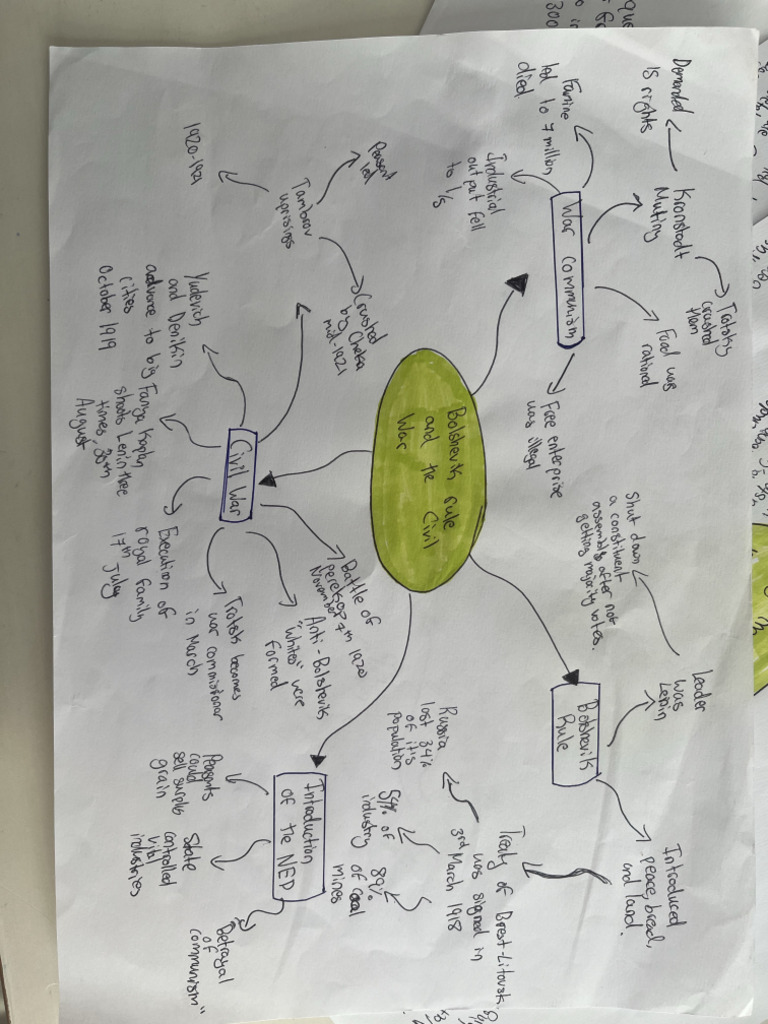 Bolshevik rule
and the
Civil
War
War communism
Kronstadt
Mutiny
Demanded
15 rights
Trotsky
crushed
them
Famine
led to 7 million
died
Industrial
output fell
to 1/5
Food was
rationed
Free enterprise
was illegal
Bolshevik
Rule
Leader
was
Lenin
Shut down
a constituent
assembly after not
getting majority votes.
Introduced
peace, bread,
and land.
Treaty of Brest-Litovsk.
was signed in
3rd March 1918
Russia
lost 34%
of it's
population
54% of
industry
89%
of coal
mines
Civil War
Tambov
uprisings
Peasent
led
1920-1921
Crushed
by Cheka
mid-1921
Yudenich
and Denikin
advance to big
cities
October 1919
Fanya Kaplan
shoots Lenin three
times, 30th
August
Execution of
royal family
17th July
Trotsky becomes
war commissioner
in March
Anti-Bolsheviks
"Whites" were
formed
Battle of
perekop 7th
November 1920
Introduction
of the NEP
Peasants
could
sell surplus
grain
State
controlled
vital
industries
Betrayal
of
communism"